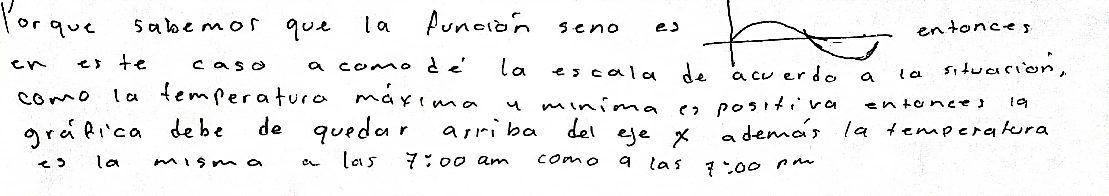 Porque sabemos que la función seno es entonces
en este caso acomodé la escala de acuerdo a la situación,
como la temperatura máxima y minima es positiva entonces la
gráfica debe de quedar arriba del eje x además la temperatura
es la misma a las 7:00 am como a las 7:00 pm